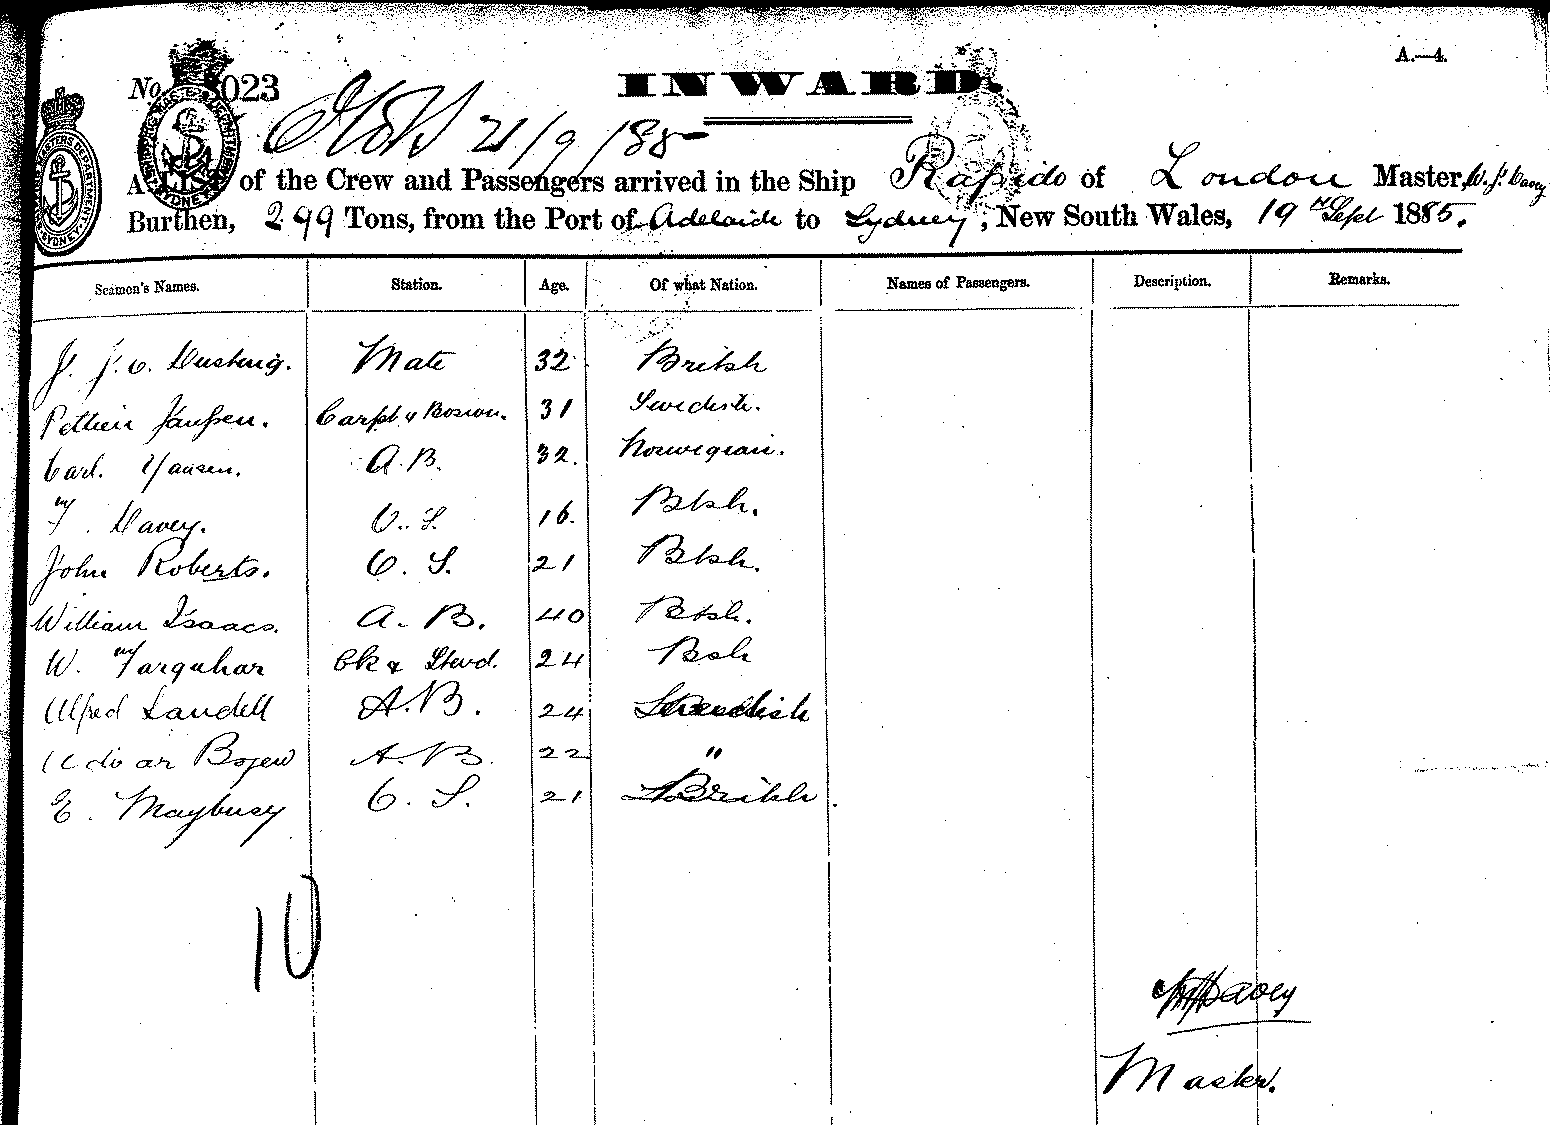 A.—4.
No. 023
INWARD.
21/9/85
A LIST of the Crew and Passengers arrived in the Ship Rapido of London Master, W. J. Davey
Burthen, 299 Tons, from the Port of Adelaide to Sydney, New South Wales, 19th Sept 1885.
Seamen's Names. Station. Age. Of what Nation. Names of Passengers. Description. Remarks.
Mate 32 British
Carpt & Boswn. 31 Swedish.
Carl. Yansen. A.B. 32. Norwegian.
F. Davey. O.S. 16. Btsh.
John Roberts. O.S. 21 Btsh.
William Isaacs. A.B. 40 Btsh.
W. Farquhar Ck & Stewd. 24 Bsh
Alfred Landell A.B. 24 Swedish
A.B. 22 "
E. Maybury O.S. 21 British
10
Davey
Master.